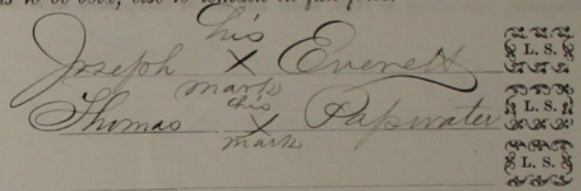 his
Joseph X Everett L. S.
mark
his
Thomas X Papwater L. S.
mark
L. S.